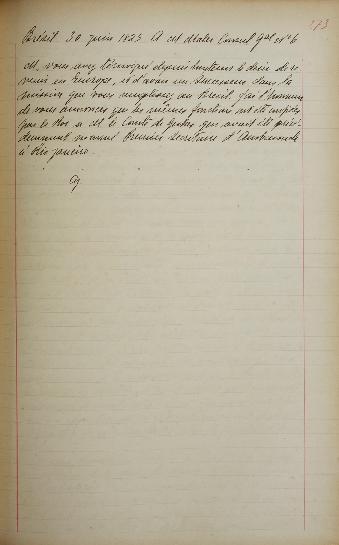 173
Brésil. 30 juin 1823. A M. Maler Consul Gal. N° 6
M. vous avez témoigné depuis longtems le désir de re-
venir en Europe, et d'avoir un successeur dans la
mission que vous remplissez au Brésil. J'ai l'honneur
de vous annoncer que les mêmes fonctions ont été confiées
par le Roi à M. le Comte de Gestas qui avait été précé-
demment nommé Premier Secrétaire d'Ambassade
à Rio janeiro.